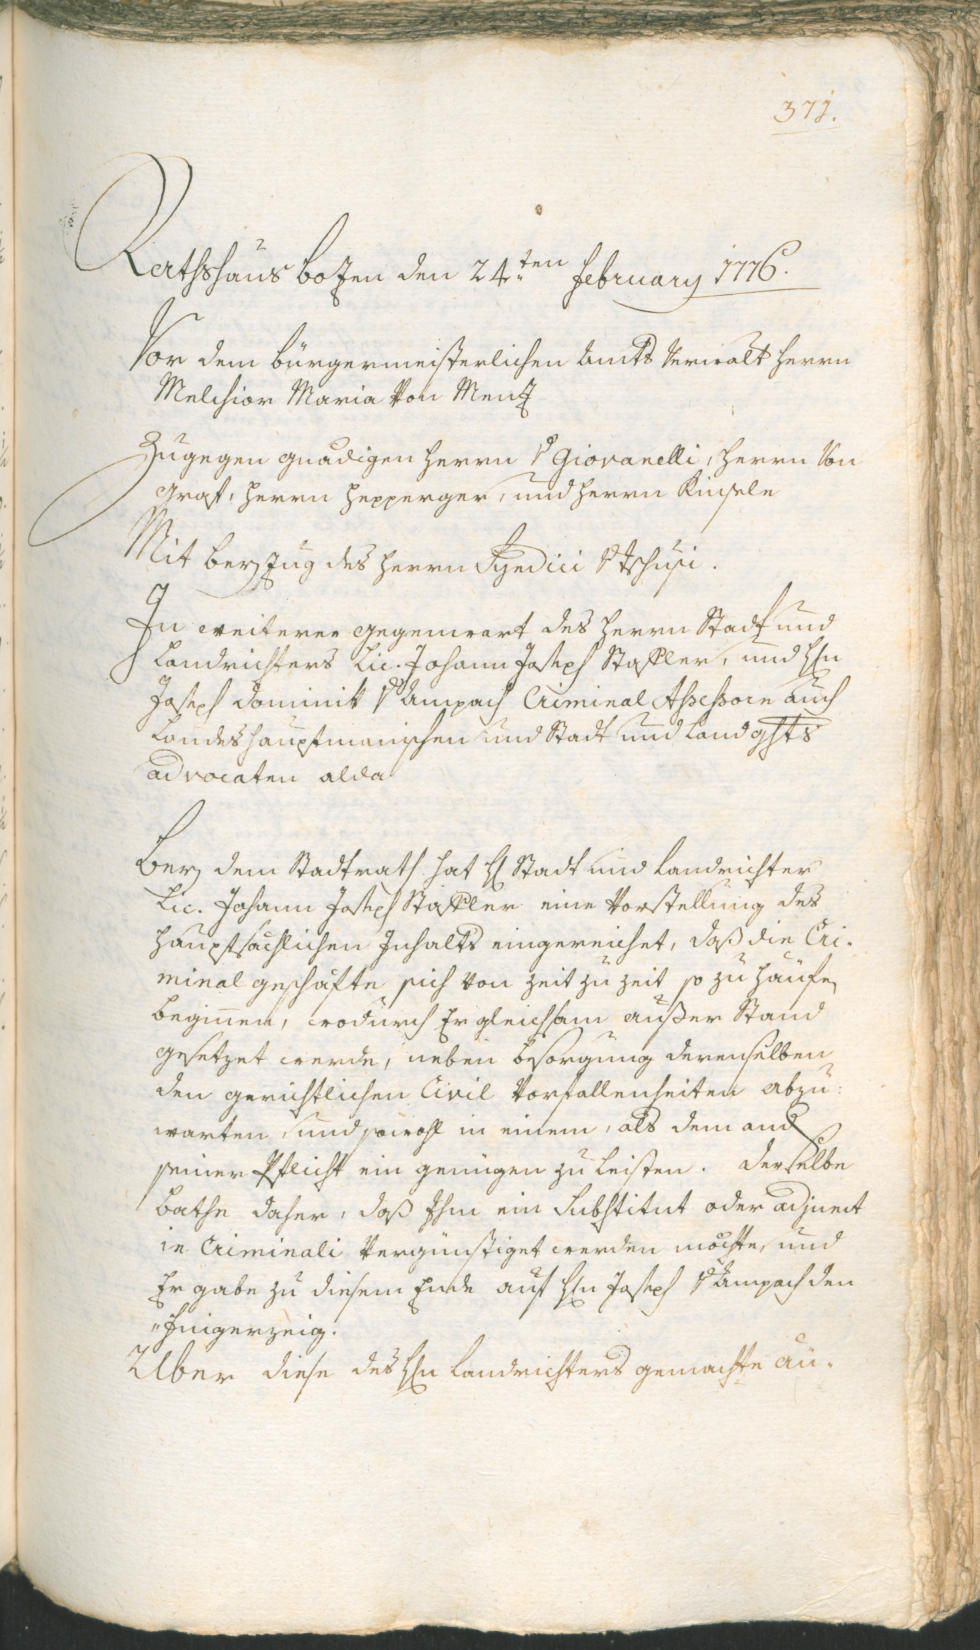 371.
Rathshaus Bozen den 24.ten February 1776.
Vor dem bürgermeisterlichen Amts Verwalt Herrn
Melchior Maria von Menz
Zugegen gnädigen Herrn v Giovanelli, Herrn von
Graf, Herrn Hepperger, und Herrn Kinsele
Mit beyzug des Herrn Syndici v Tschusi.
In weiterer gegenwart des Herrn Stadt und
Landrichters Lic. Johann Joseph Stapler, und Hn
Joseph Dominik v Ampach Criminal Assessorn auch
Landeshauptmanischen und Stadt und Landghts
advocaten alda
Bey dem Stadtrath hat H Stadt und Landrichter
Lic. Johann Joseph Stapler eine Vorstellung des
hauptsächlichen Inhalts eingereichet, daß die Cri-
minal geschäfte sich von Zeit zu Zeit so zu häufen
beginnen, wodurch Er gleichsam außer Stand
gesetzet werde, neben besorgung derenselben
den gerichtlichen Civil Vorfallenheiten abzu-
warten, und sowohl in einem, als dem and
seiner Pflicht ein genügen zu leisten. Derselbe
bathe daher, daß Ihm ein Substitut oder adjunct
in Criminali vergünstiget werden möchte, und
Er gabe zu diesem Ende auf Hn Joseph v Ampach den
Fingerzeig.
Uber diese des Hn Landrichters gemachte an-